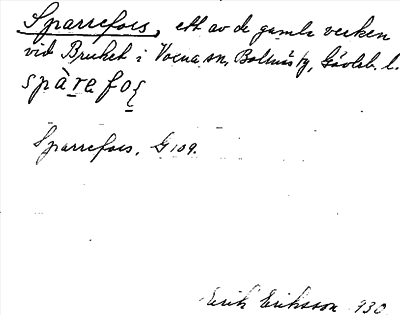 Sparrefors, ett av de gamla verken
vid Bruket i Voxna sn, Bollnäs tg, Gävleb. l.
spàrefoʂ
Sparrefors, G 109.
Erik Eriksson 930